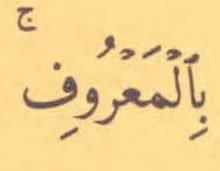 بِٱلْمَعْرُوفِ ۚ